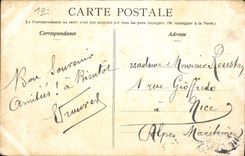 10-
CARTE POSTALE
La Correspondance au recto n'est pas acceptée par tous les pays étrangers. (Se renseigner à la Poste.)
Correspondance
Adresse
Bon Souvenir
Amitiés ! à Bientôt
Madame Monsieur
1 rue Gioffredo
à
Nice
Alpes Maritimes